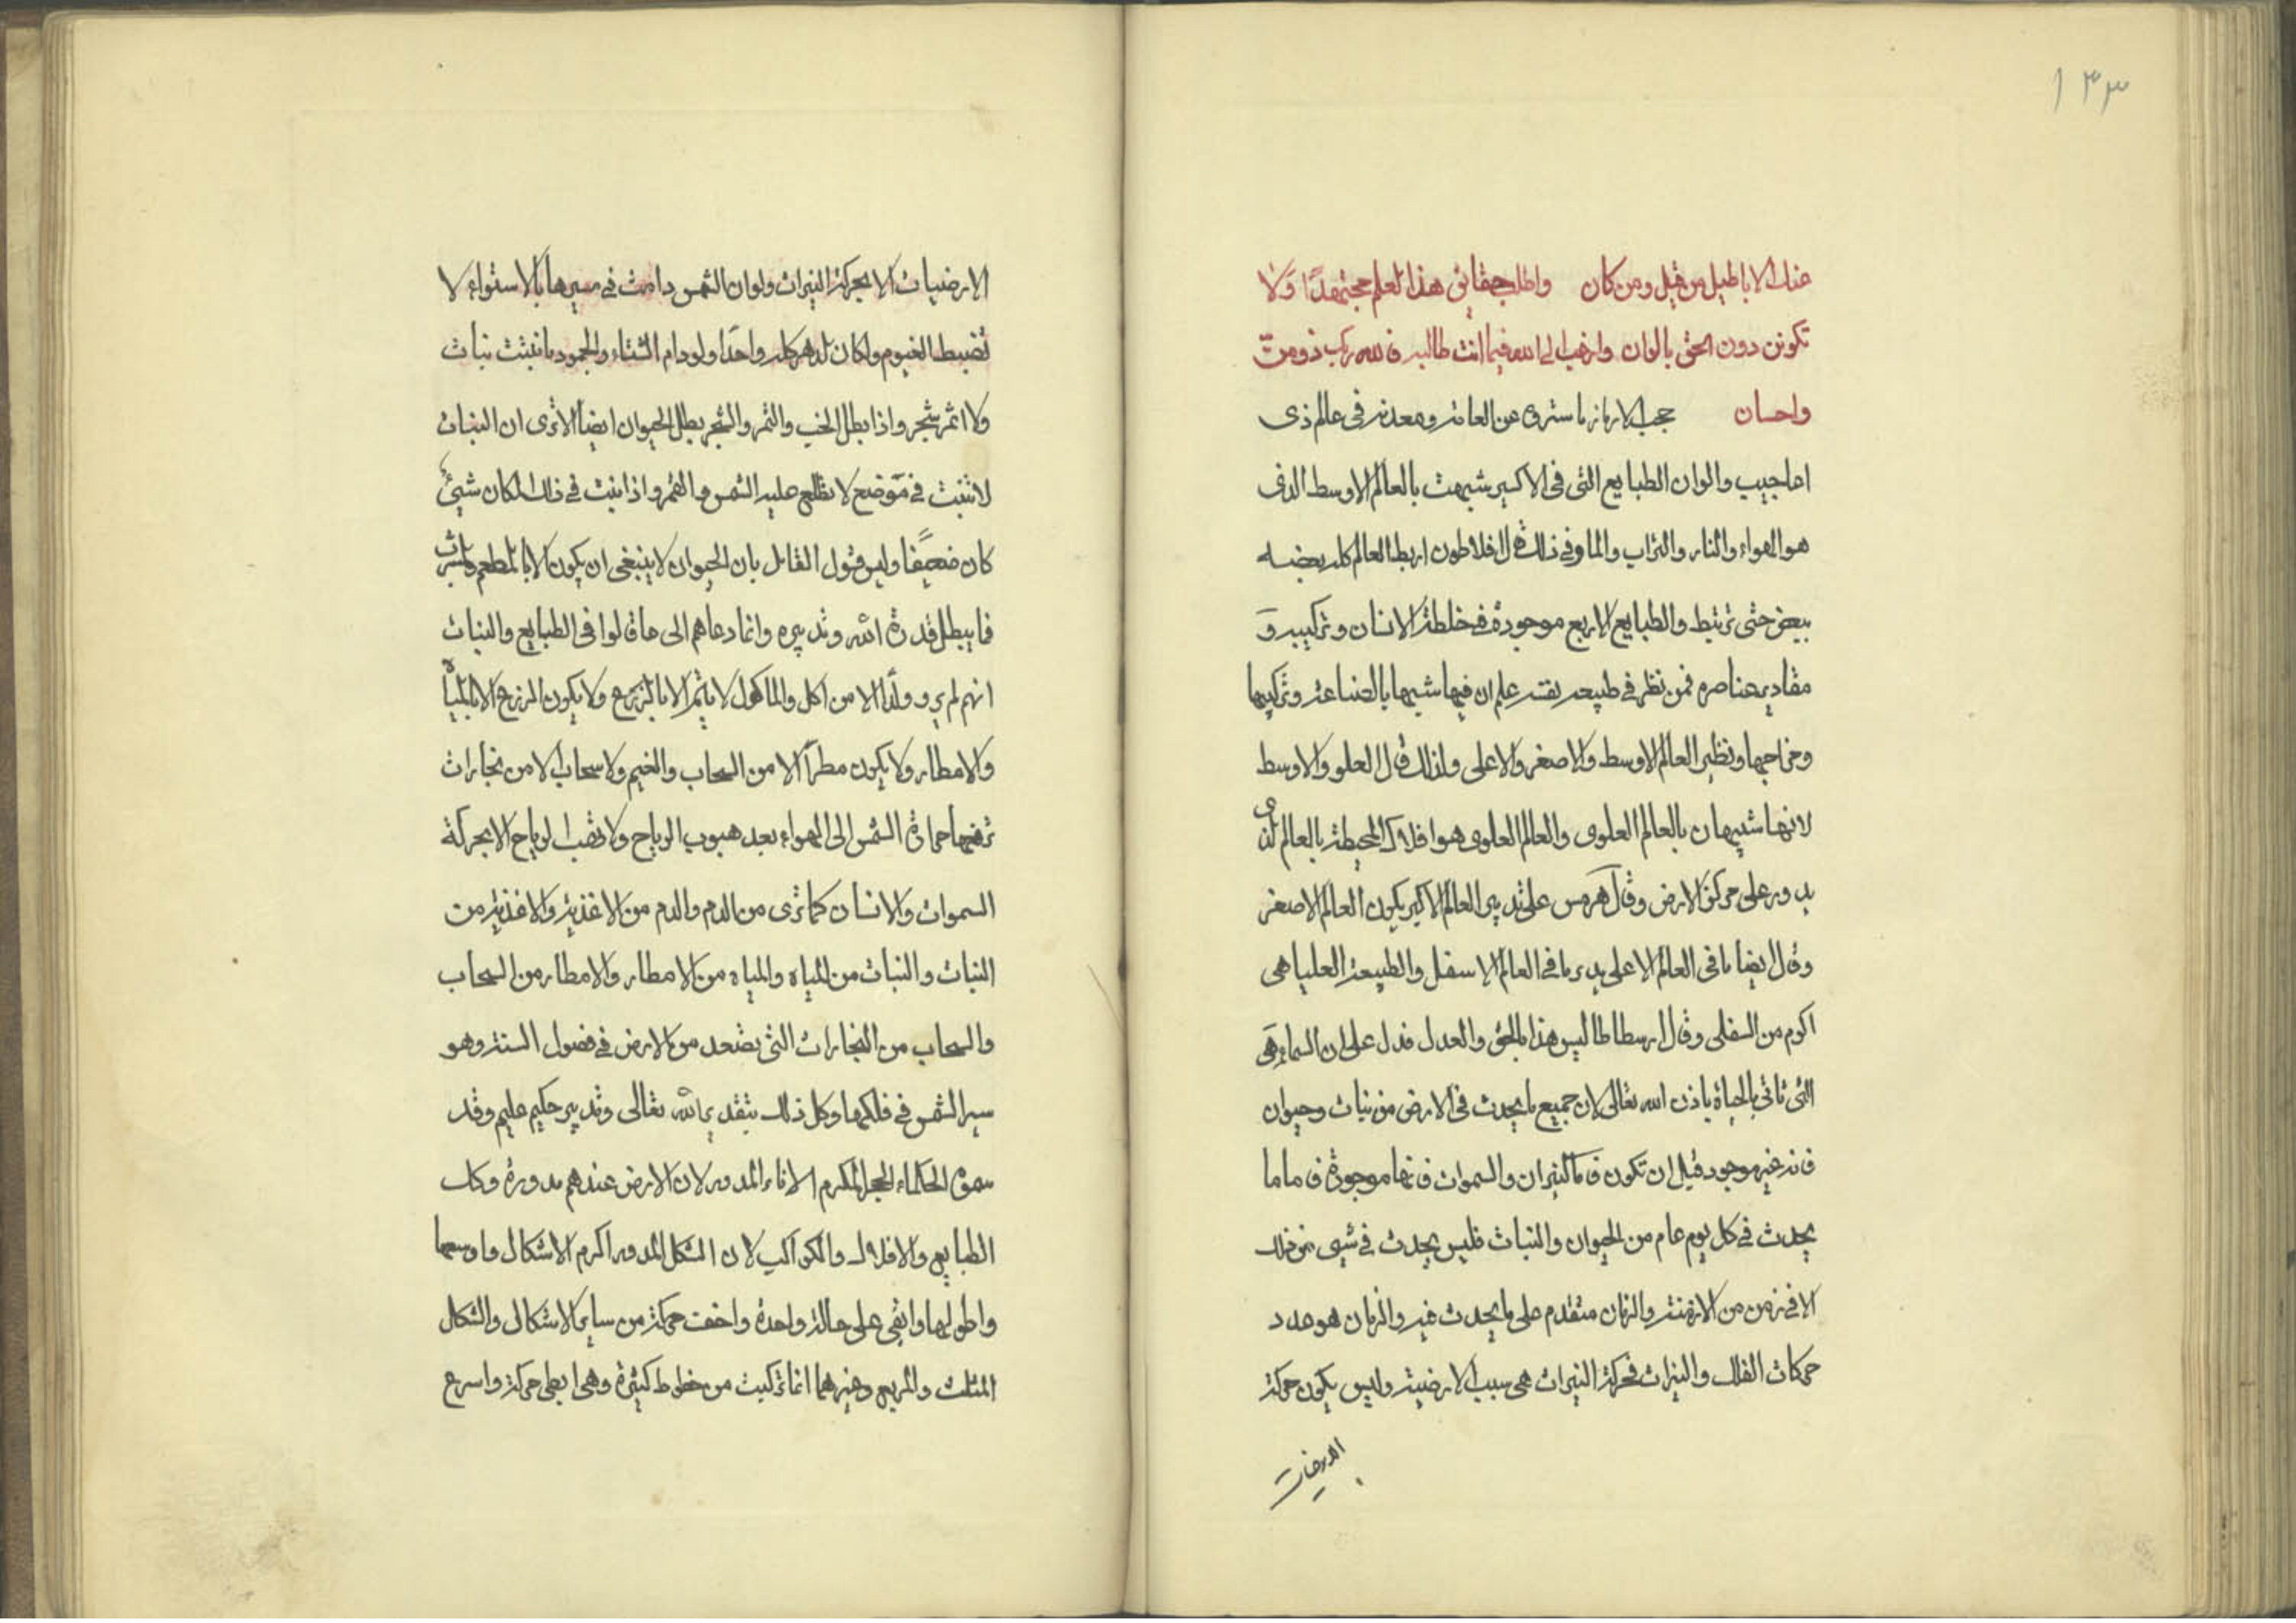 ١٣٣
عنك الاباطيل من قيل ومن كان واطلب حقائق هذا العلم مجتهدًا ولا
تكونن دون الحق بالوان وارغب الى الله فيما انت طالبه فالله رب ذو من
واحسان حجب الارباز ما ستروه عن العامة ومعدنه فى عالم ذى
اعاجيب والوان الطبايع التى فى الاكسير شبهت بالعالم الاوسط الذى
هو الهواء والنار والتراب والما وفى ذلك قال افلاطون اربط العالم كله بعضه
ببعض حتى ترتبط والطبايع الاربع موجودة فى خلطة الانسان وتركيبه و
مقادير عناصره فمن نظر فى طبيعة نفسه علم ان فيها شبها بالصناعة وتركيبها
ومزاجها ونظير العالم الاوسط والاصغر والاعلى ولذلك قال العلو والاوسط
لانها شبيهان بالعالم العلوى والعالم العلوى هو افلاك المحيطة بالعالم الذى
يدور على مركز الارض وقال هرمس على تدبير العالم الاكبر يكون العالم الاصغر
وقال ايضا ما فى العالم الاعلى يدبر ما فى العالم الاسفل والطبيعة العليا هى
اكرم من السفلى وقال ارسطاطاليس هذا بالحق والعدل فدل على ان السماء هى
التى تاتى بالحياة باذن الله تعالى لان جميع ما يحدث فى الارض من نبات وحيوان
فانه غير موجود قبل ان تكون فاما النيران والسموات فانها موجودة فاما ما
يحدث فى كل يوم عام من الحيوان والنبات فليس يحدث فى شيى من ذلك
الا فى زمن من الازمنة والزمان متقدم على ما يحدث فيه والزمان هو عدد
حركات الفلك والنيرات فحركة النيرات هى سبب الارضية وليس يكون حركة
الارضيات
الارضيات الا بحركة النيرات ولو ان الشمس دامت فى مسيرها بالاستواء لا
تضبط الغيوم ولكان الدهر كله واحدًا ولو دام الشتاء والجمود ما نبتت نبات
ولا اثمر شجر واذا بطل الحب والثمر والشجر بطل الحيوان ايضا الا ترى ان النبات
لا تنبت فى موضع لا يطلع عليه الشمس والقمر واذا نبت فى ذلك المكان شيئ
كان ضعيفا وليس قول القائل بان الحيوان لا ينبغى ان يكون الا بالمطعم والمشرب
فما يبطل قدرة الله وتدبيره وانما دعاهم الى ما قالوا فى الطبايع والنبات
انهم لم يروا ولدًا الا من اكل والماكول لا يتم الا بالزرع ولا يكون الزرع الا بالمياه
والامطار ولا يكون مطرًا الا من السحاب والغيم ولا سحاب الا من بخارات
ترفعها حرارة الشمس الى الهواء بعد هبوب الرياح ولا تهب الرياح الا بحركة
السموات والانسان كما ترى من الدم والدم من الاغذية والاغذية من
النبات والنبات من المياه والمياه من الامطار والامطار من السحاب
والسحاب من البخارات التى تصعد من الارض فى فصول السنة وهو
سير الشمس فى فلكها وكل ذلك بتقدير الله تعالى وتدبير حكيم عليم وقد
سموا الحكماء الحجر المكرم الاناء المدور لان الارض عندهم مدورة وكك
الطبايع والافلاك والكواكب لان الشكل المدور اكرم الاشكال واوسعها
واطولها وابقى على حالة واحدة واخف حركة من ساير الاشكال والشكل
المثلث والمربع وغيرهما انما تركبت من خطوط كثيرة وهى ابطى حركة واسرع